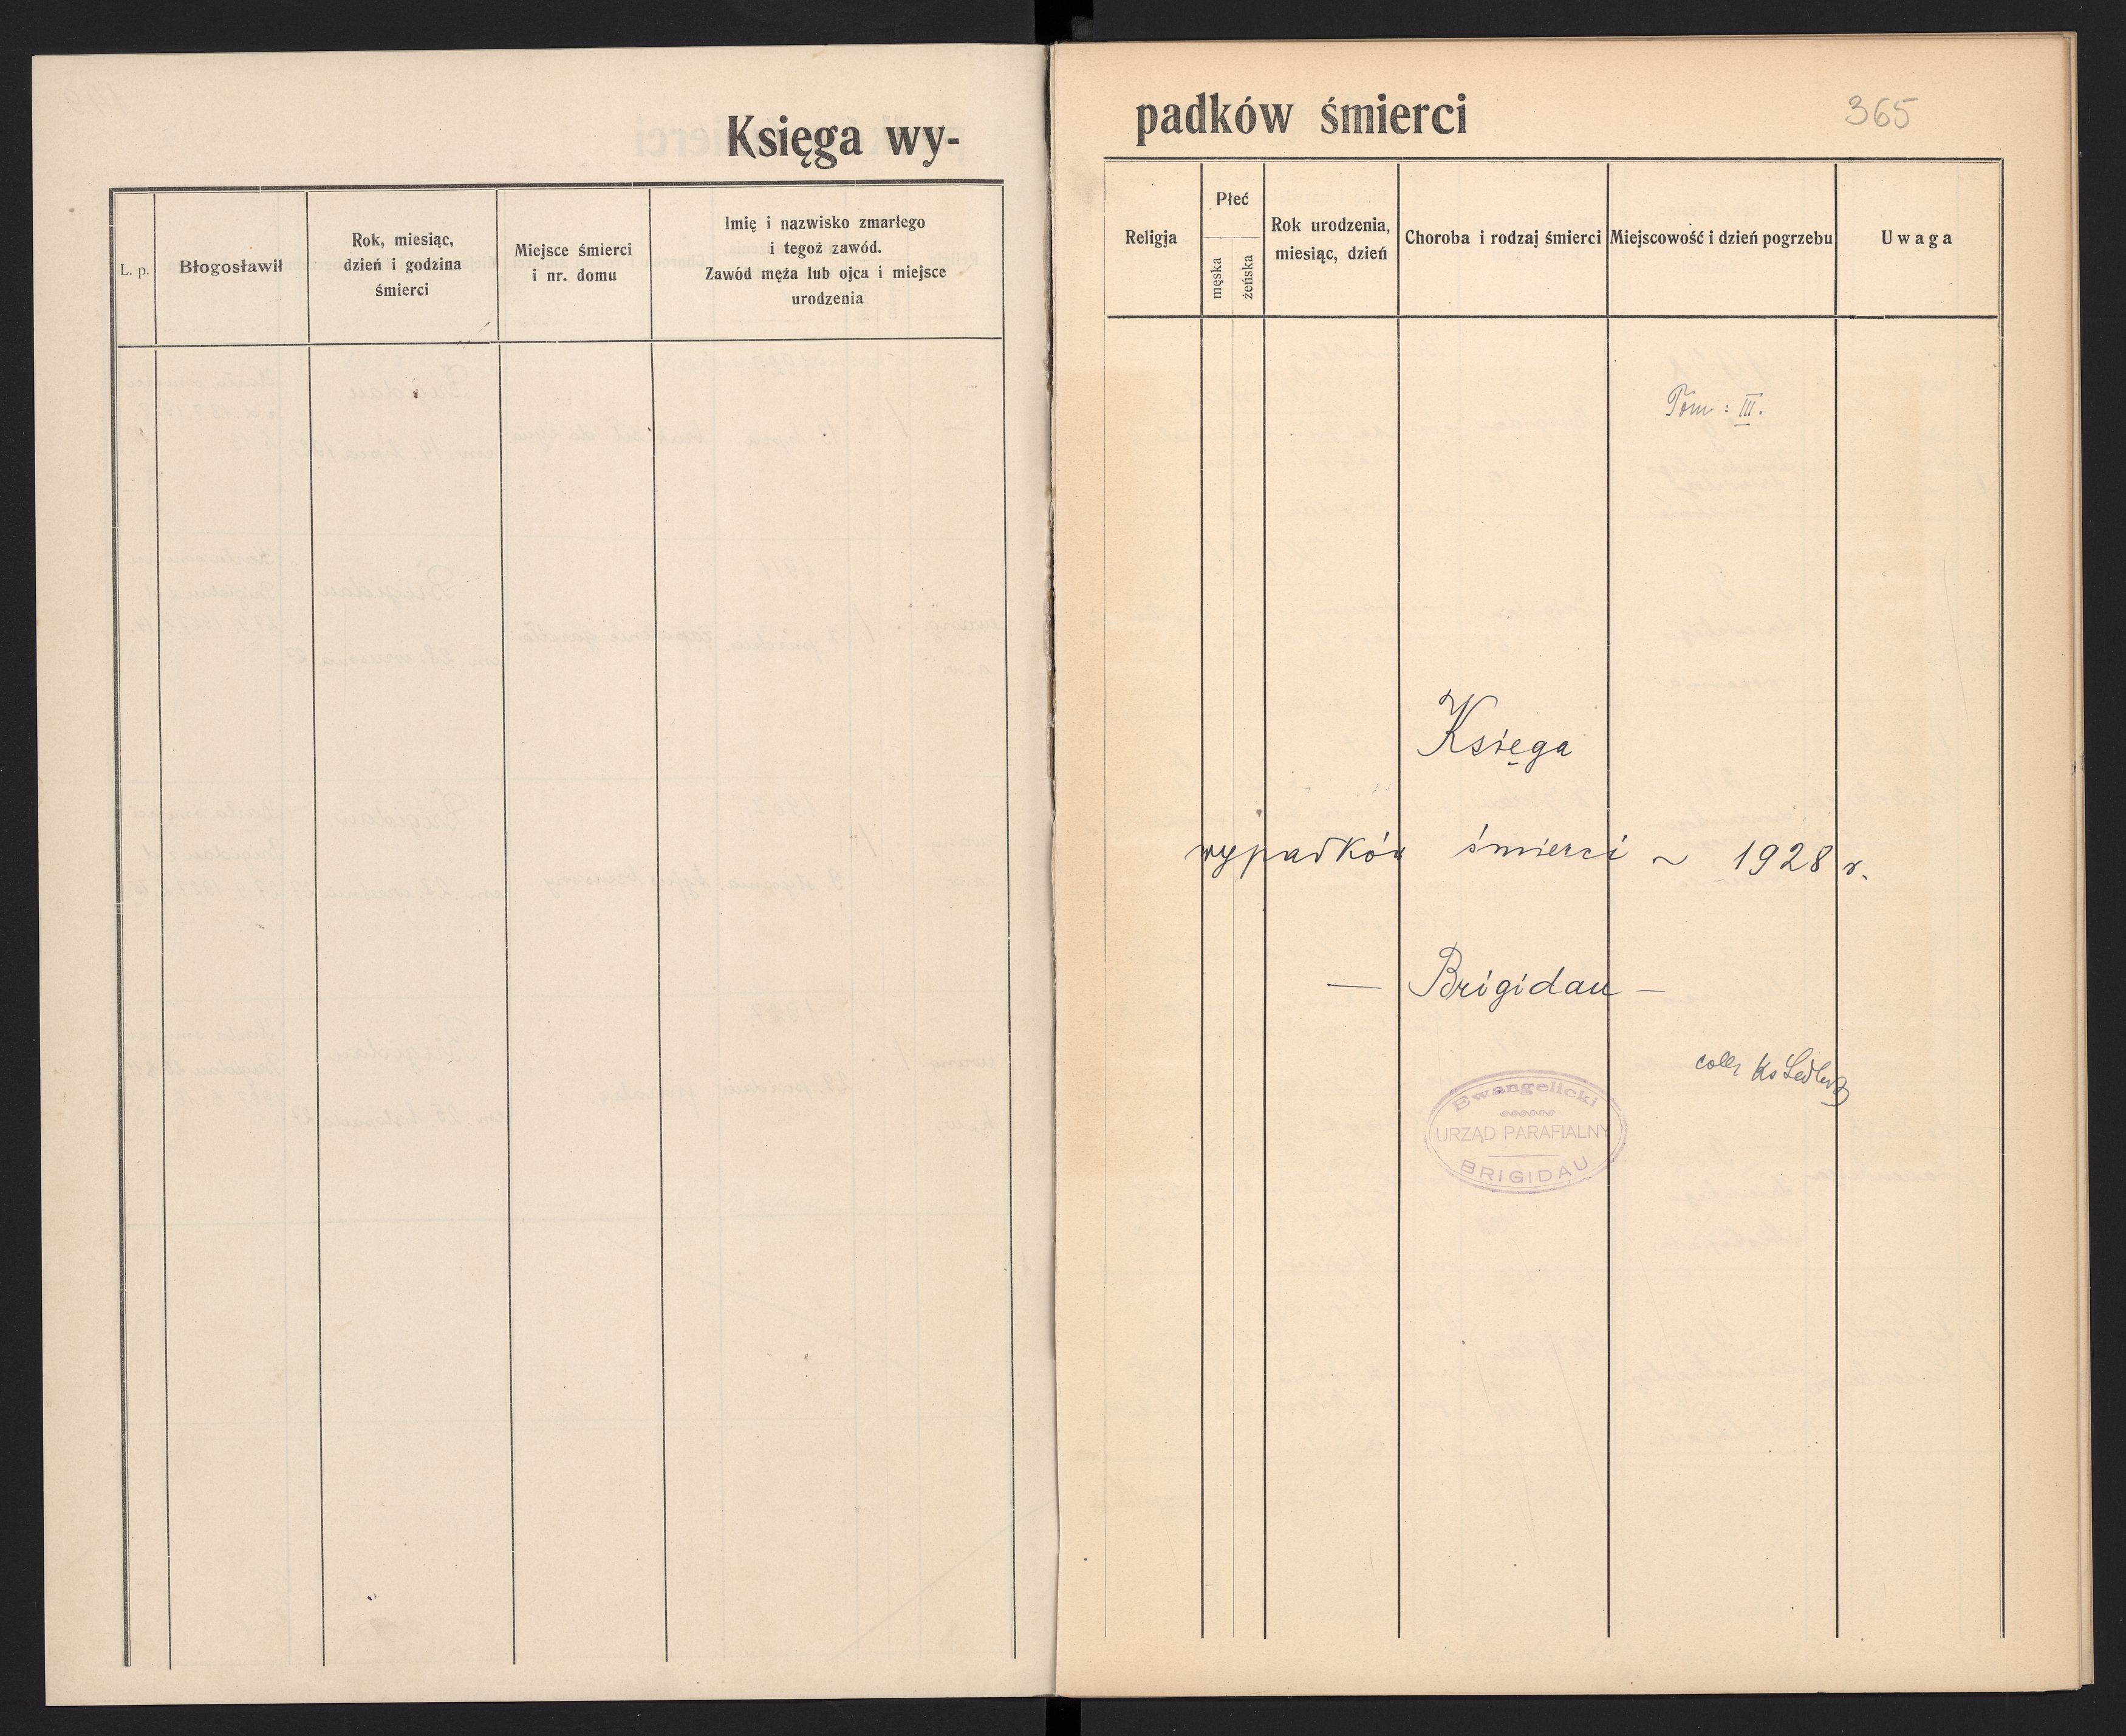 Księga wy-
L. p.
Błogosławił
Rok, miesiąc,
dzień i godzina
śmierci
Miejsce śmierci
i nr. domu
Imię i nazwisko zmarłego
i tegoż zawód.
Zawód męża lub ojca i miejsce
urodzenia
padków śmierci
365
Religja
Płeć
męska
żeńska
Rok urodzenia,
miesiąc, dzień
Choroba i rodzaj śmierci
Miejscowość i dzień pogrzebu
Uwaga
Tom: III.
Księga
wypadków śmierci ~ 1928 r.
— Brigidau —
Ewangelicki
URZĄD PARAFIALNY
BRIGIDAU